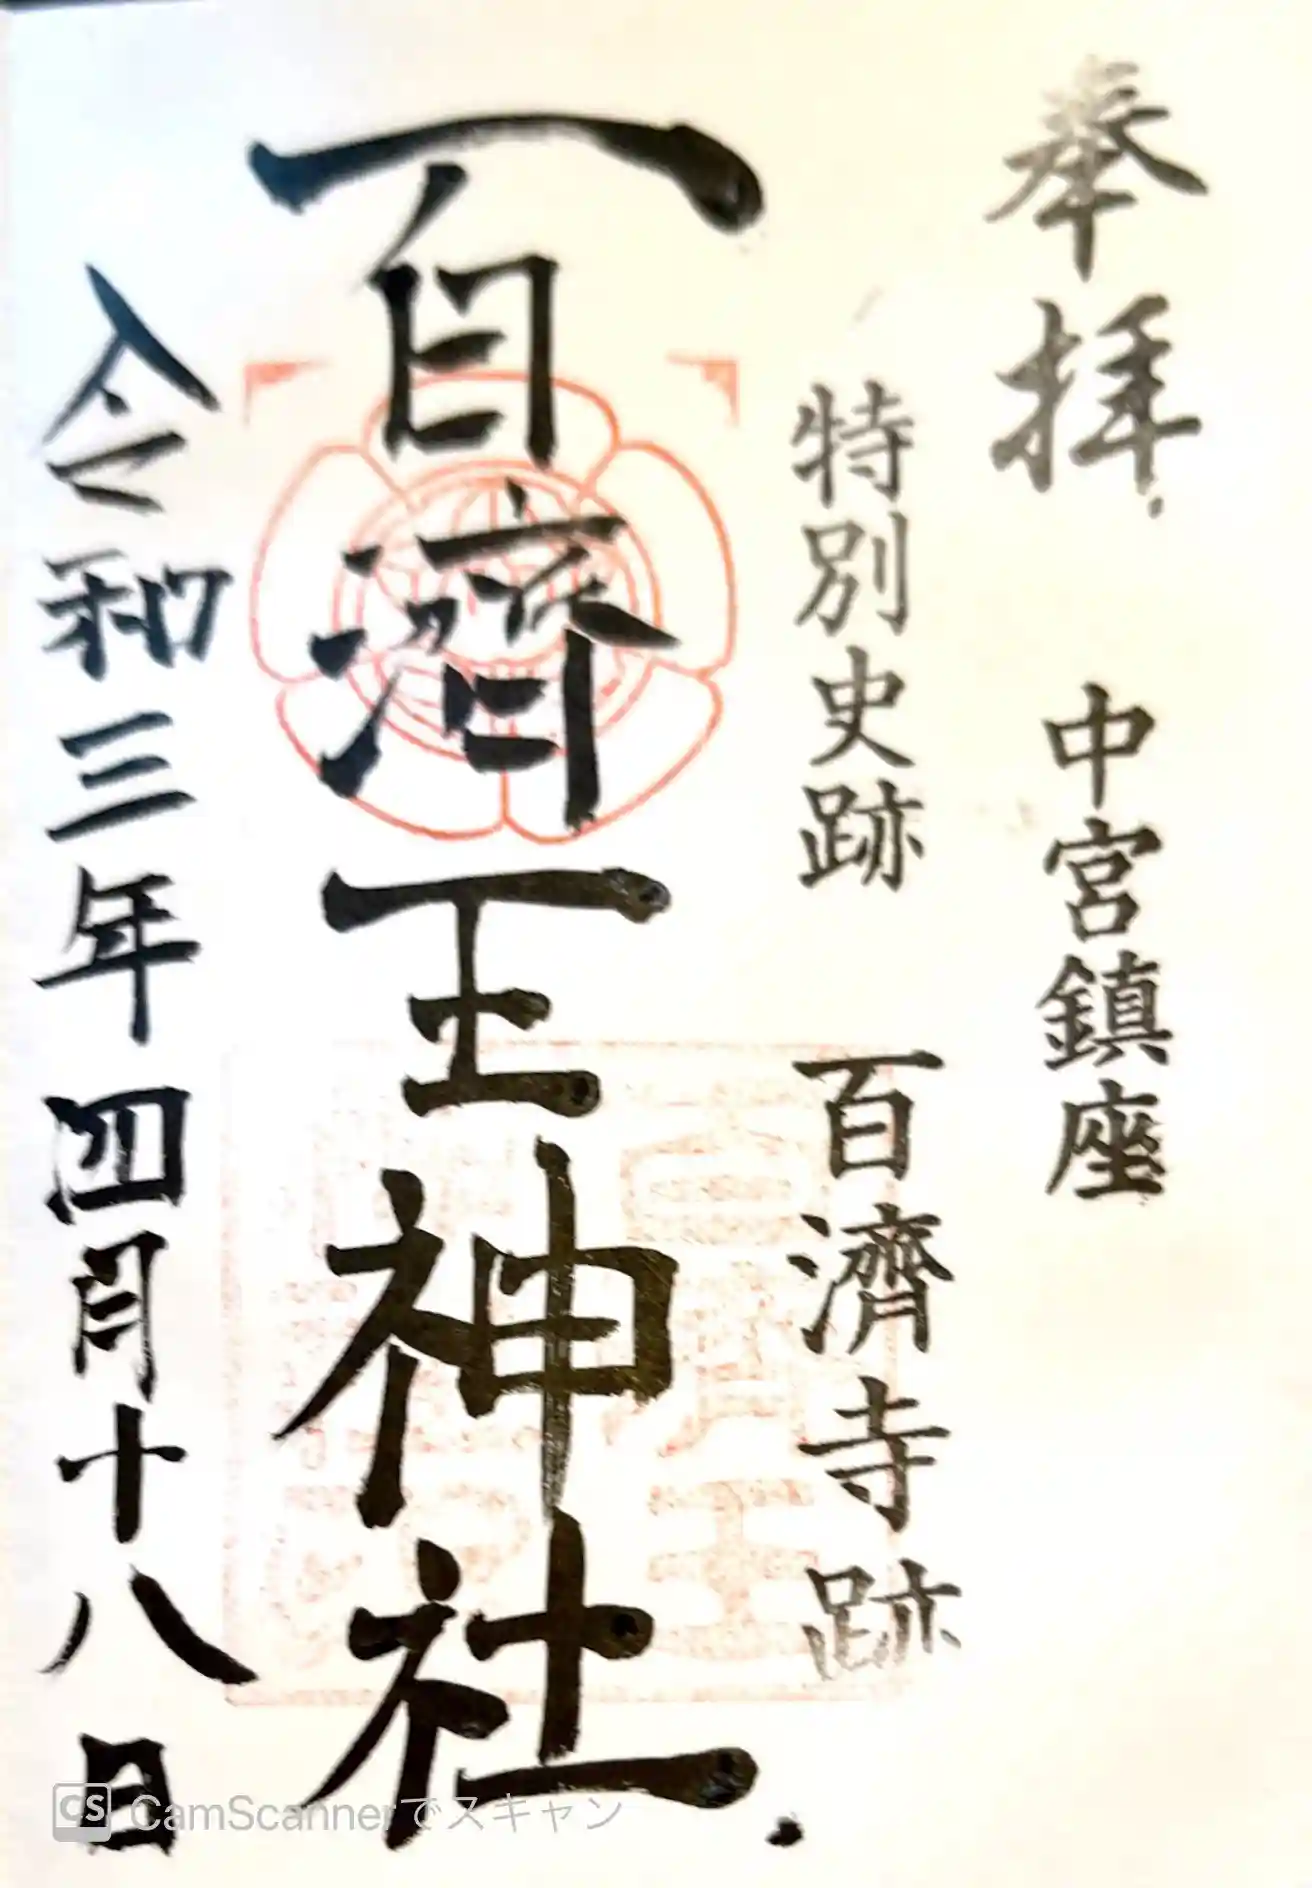 奉拝
中宮鎮座
特別史跡
百濟寺跡
百濟王神社
令和三年四月十八日
CS CamScannerでスキャン